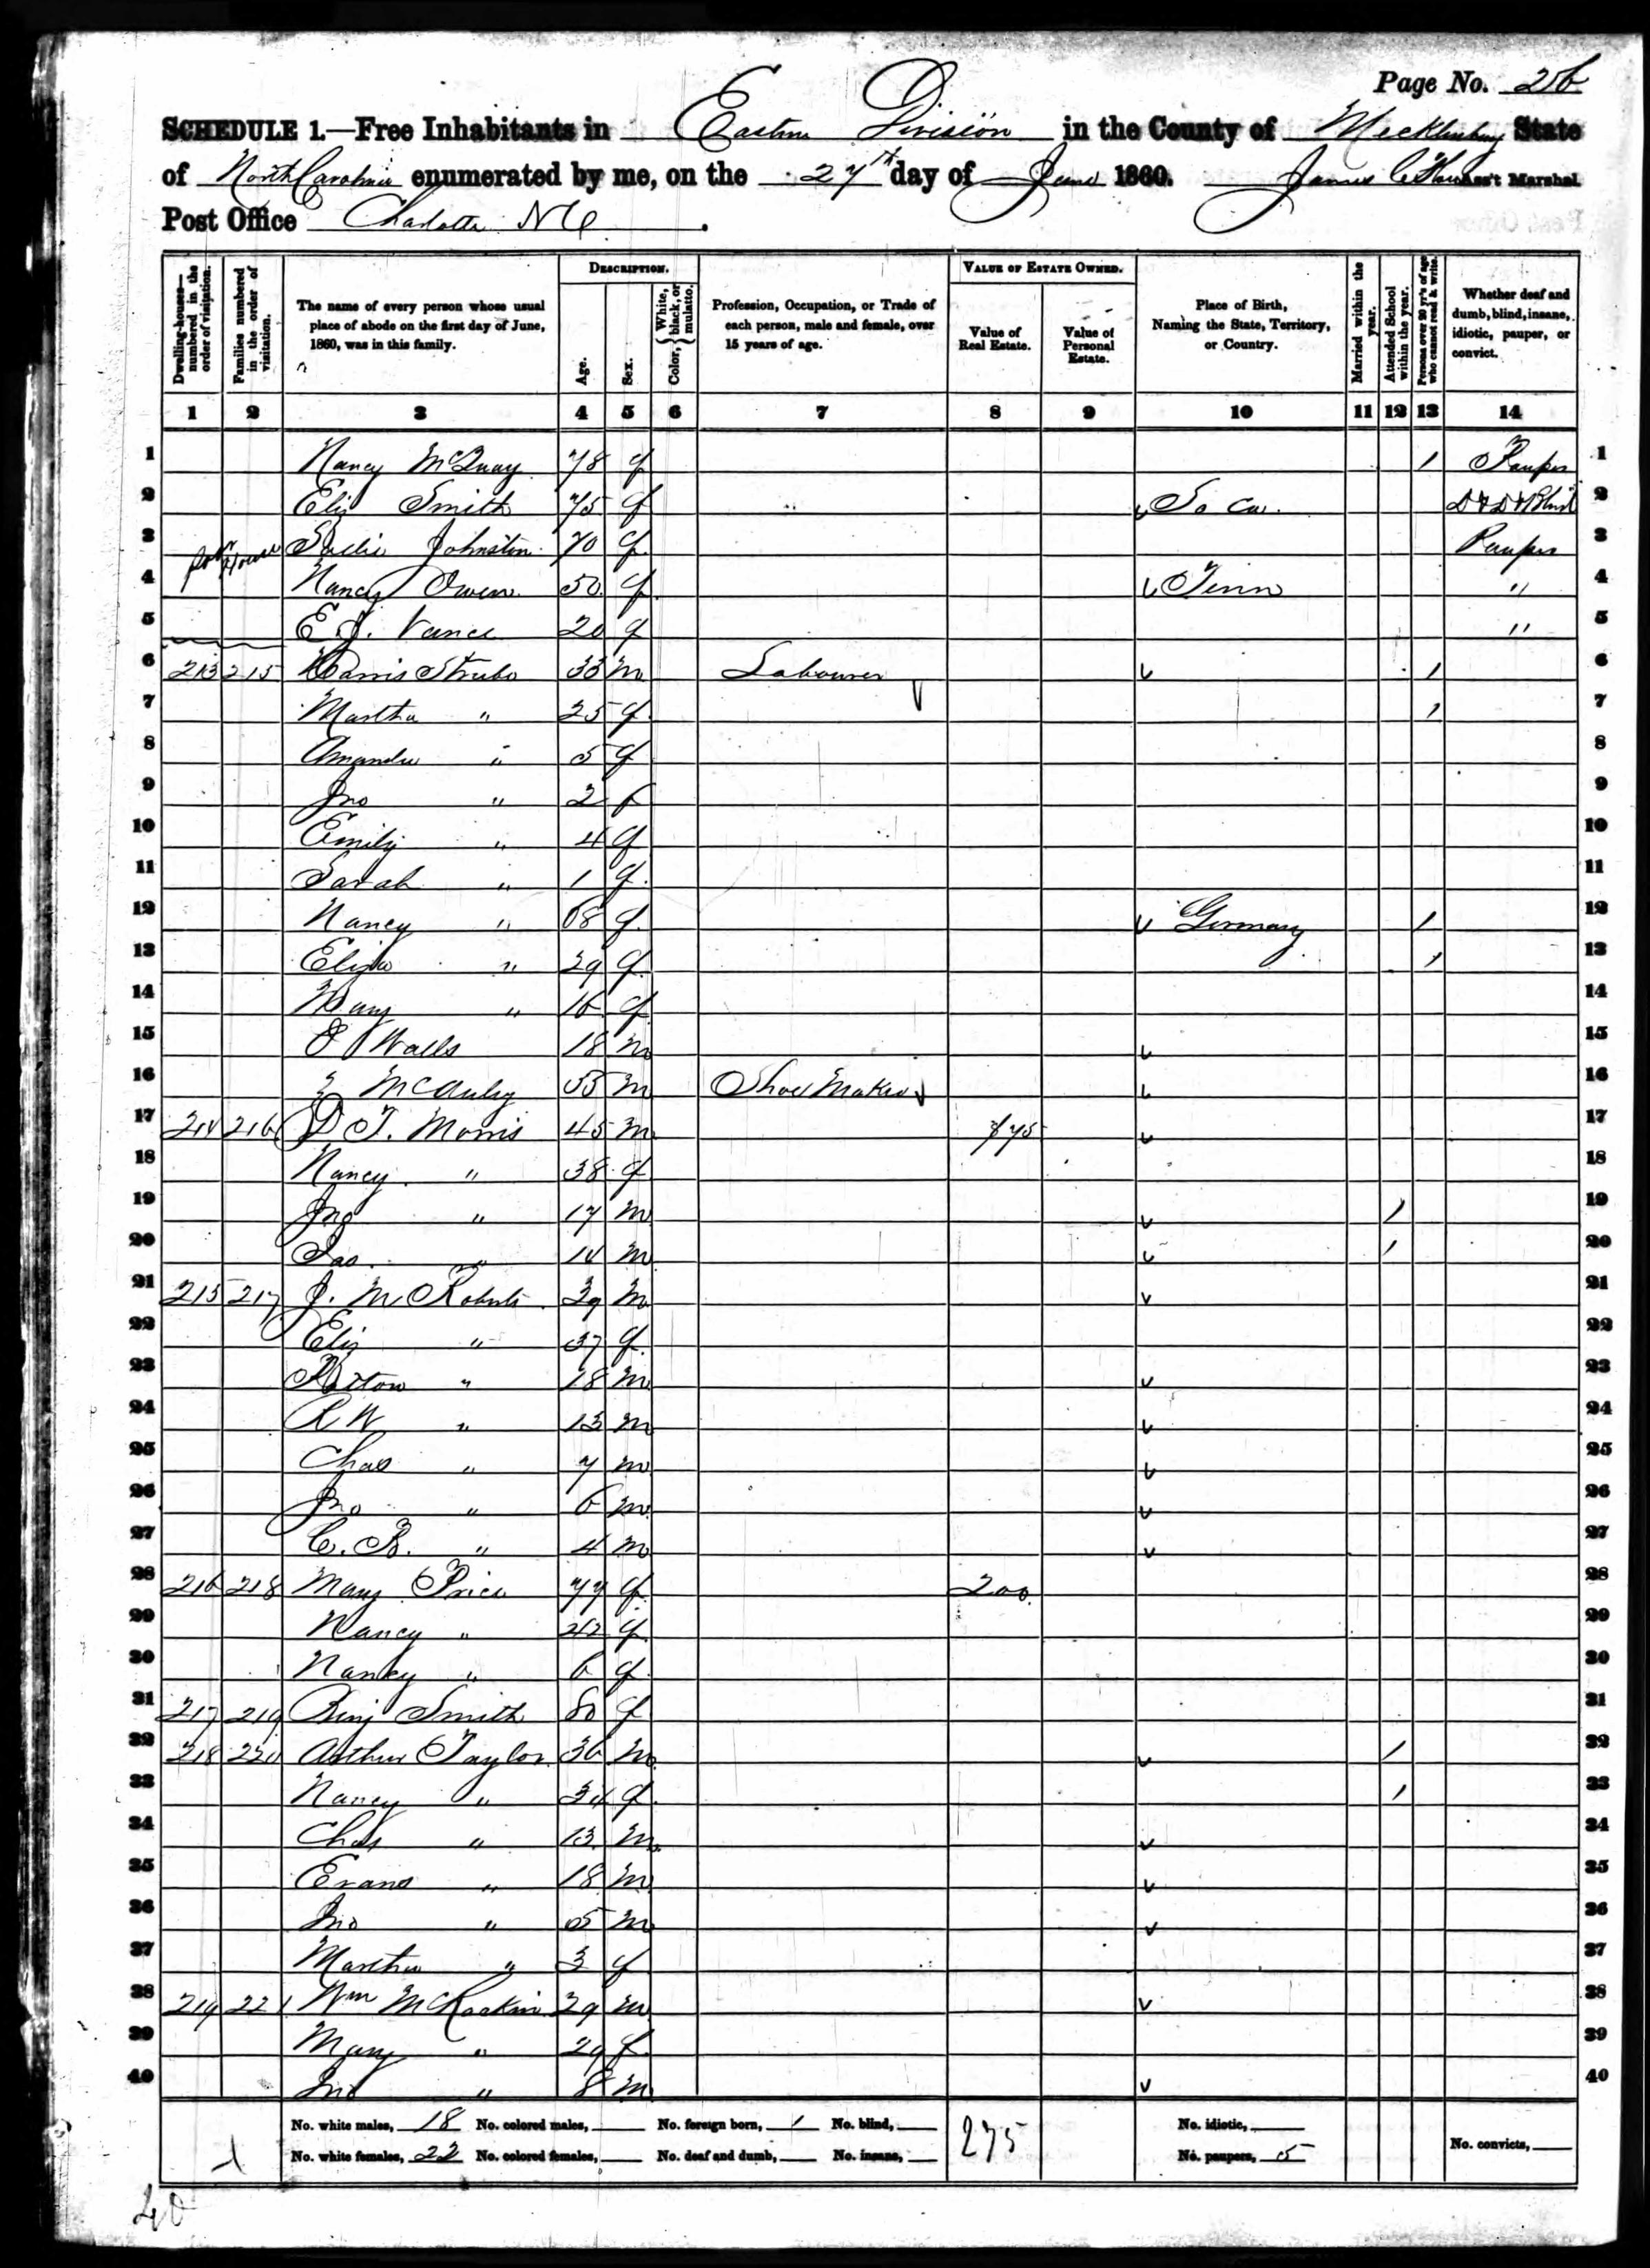 Page No. 26
SCHEDULE 1.—Free Inhabitants in Eastern Division in the County of Mecklenburg State
of North Carolina enumerated by me, on the 27th day of June 1860. James Ass't Marshal
Post Office Charlotte N C
Dwelling-houses—numbered in the order of visitation.
Families numbered in the order of visitation.
The name of every person whose usual place of abode on the first day of June, 1860, was in this family.
Description.
Age.
Sex.
Color, {White, black, or mulatto.
Profession, Occupation, or Trade of each person, male and female, over 15 years of age.
Value of Estate Owned.
Value of Real Estate.
Value of Personal Estate.
Place of Birth, Naming the State, Territory, or Country.
Married within the year.
Attended School within the year.
Persons over 20 y'rs of age who cannot read & write.
Whether deaf and dumb, blind, insane, idiotic, pauper, or convict.
1 2 3 4 5 6 7 8 9 10 11 12 13 14
1 Nancy McQuay 78 f / Pauper 1
2 Eliz Smith 75 f So Ca. D & D & Blind 2
3 Poor House Sallie Johnston 70 f Pauper 3
4 Nancy Owen 50 f Tenn " 4
5 E. J. Vance 20 f " 5
6 213 215 33 m Labourer / 6
7 Martha " 25 f / 7
8 Amanda " 5 f 8
9 Jno " 2 f 9
10 Emily " 4 f 10
11 Sarah " 1 f 11
12 Nancy " 68 f Germany / 12
13 Eliza " 29 f / 13
14 Mary " 16 f 14
15 Walls 18 m 15
16 McAuley 55 m Shoe Maker 16
17 214 216 D. T. Morris 45 m $75 17
18 Nancy " 38 f 18
19 Jno " 17 m / 19
20 Jas. " 14 m / 20
21 215 217 J. M Roberts 39 m 21
22 Eliz " 37 f 22
23 " 18 m 23
24 R W " 13 m 24
25 Chas " 7 m 25
26 Jno " 6 m 26
27 C. B. " 4 m 27
28 216 218 Mary Price 77 f 200 28
29 Nancy " 42 f 29
30 Nancy " 6 f 30
31 217 219 Smith 80 f 31
32 218 220 Arthur Taylor 36 m / 32
33 Nancy " 34 f / 33
34 Chas " 13 m 34
35 Evans " 18 m 35
36 Jno " 5 m 36
37 Martha " 3 f 37
38 219 221 Wm 29 m 38
39 Mary " 29 f 39
40 Jno " 8 m 40
No. white males, 18 No. colored males, No. foreign born, 1 No. blind, 275 No. idiotic,
No. white females, 22 No. colored females, No. deaf and dumb, No. insane, No. paupers, 5 No. convicts,
40